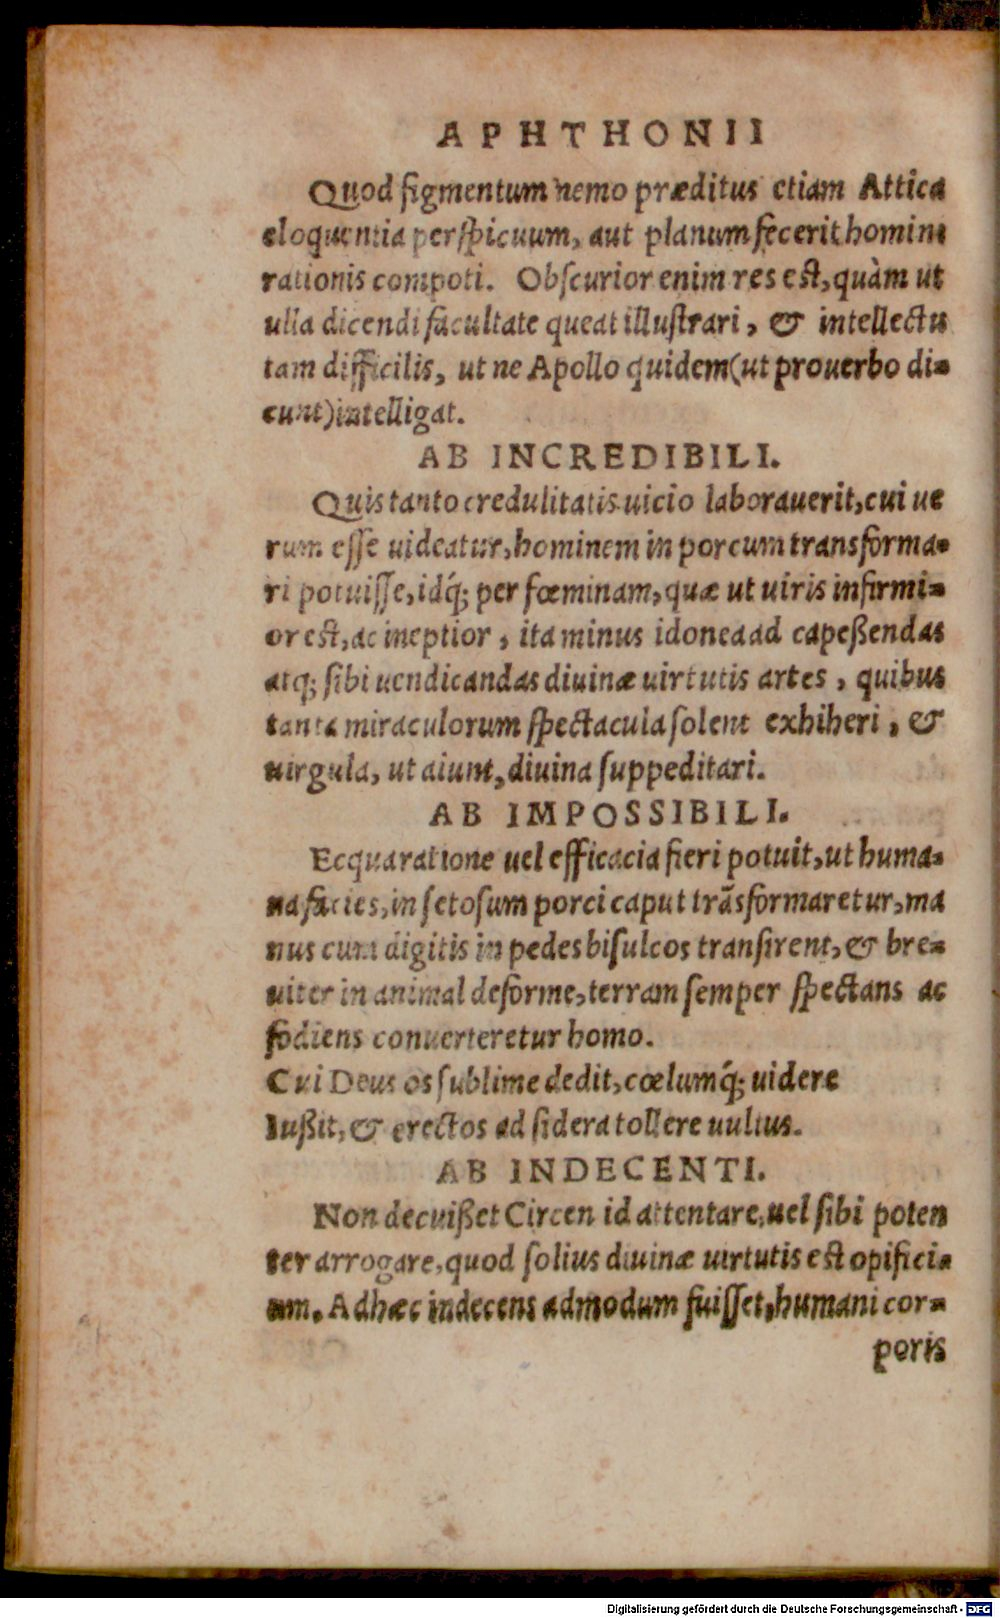 APHTHONII
Quod figmentum nemo præditus etiam Attica
eloquentia perspicuum, aut planum fecerit homini
rationis compoti. Obscurior enim res est, quàm ut
ulla dicendi facultate queat illustrari, & intellectu
tam difficilis, ut ne Apollo quidem (ut prouerbo di=
cunt) intelligat.
AB INCREDIBILI.
Quis tanto credulitatis uicio laborauerit, cui ue
rum esse uideatur, hominem in porcum transforma=
ri potuisse, idq́; per fœminam, quæ ut uiris infirmi=
or est, ac ineptior, ita minus idonea ad capeßendas
atq; sibi uendicandas diuinæ uirtutis artes, quibus
tanta miraculorum spectacula solent exhiheri, &
uirgula, ut aiunt, diuina suppeditari.
AB IMPOSSIBILI.
Ecqua ratione uel efficacia fieri potuit, ut huma=
na facies, in setosum porci caput trãsformaretur, ma
nus cum digitis in pedes bisulcos transirent, & bre=
uiter in animal deforme, terram semper spectans ac
fodiens conuerteretur homo.
Cui Deus os sublime dedit, cœlumq́; uidere
Iußit, & erectos ad sidera tollere uultus.
AB INDECENTI.
Non decuißet Circen id attentare, uel sibi poten
ter arrogare, quod solius diuinæ uirtutis est opifici=
um. Adhæc indecens admodum fuisset, humani cor=
poris
Digitalisierung gefördert durch die Deutsche Forschungsgemeinschaft - DFG